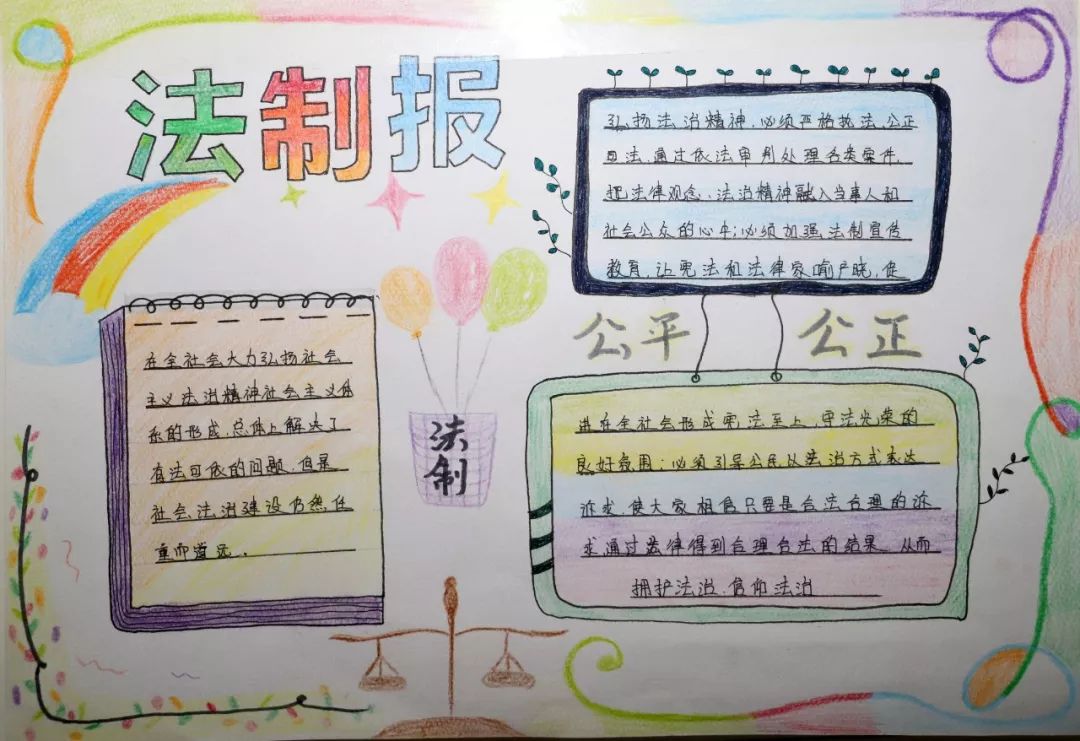 法制报
弘扬法治精神，必须严格执法、公正
司法，通过依法审判处理各类案件，
把法律观念、法治精神融入当事人和
社会公众的心中；必须加强法制宣传
教育，让宪法和法律家喻户晓，促
公平 公正
进在全社会形成宪法至上、守法光荣的
良好氛围；必须引导公民以法治方式表达
诉求，使大家相信只要是合法合理的诉
求通过法律得到合理合法的结果，从而
拥护法治、信仰法治
在全社会大力弘扬社会
主义法治精神社会主义体
系的形成，总体上解决了
有法可依的问题，但是
社会法治建设仍然任
重而道远。
法制